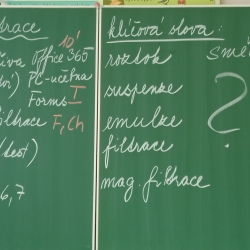 trace
10'
Office 365
PC-učebna
Forms I
filtrace F, Ch
(test)
6,7
klíčová slova:
roztok
suspenze
emulze
filtrace
mag. filtrace
smě
?